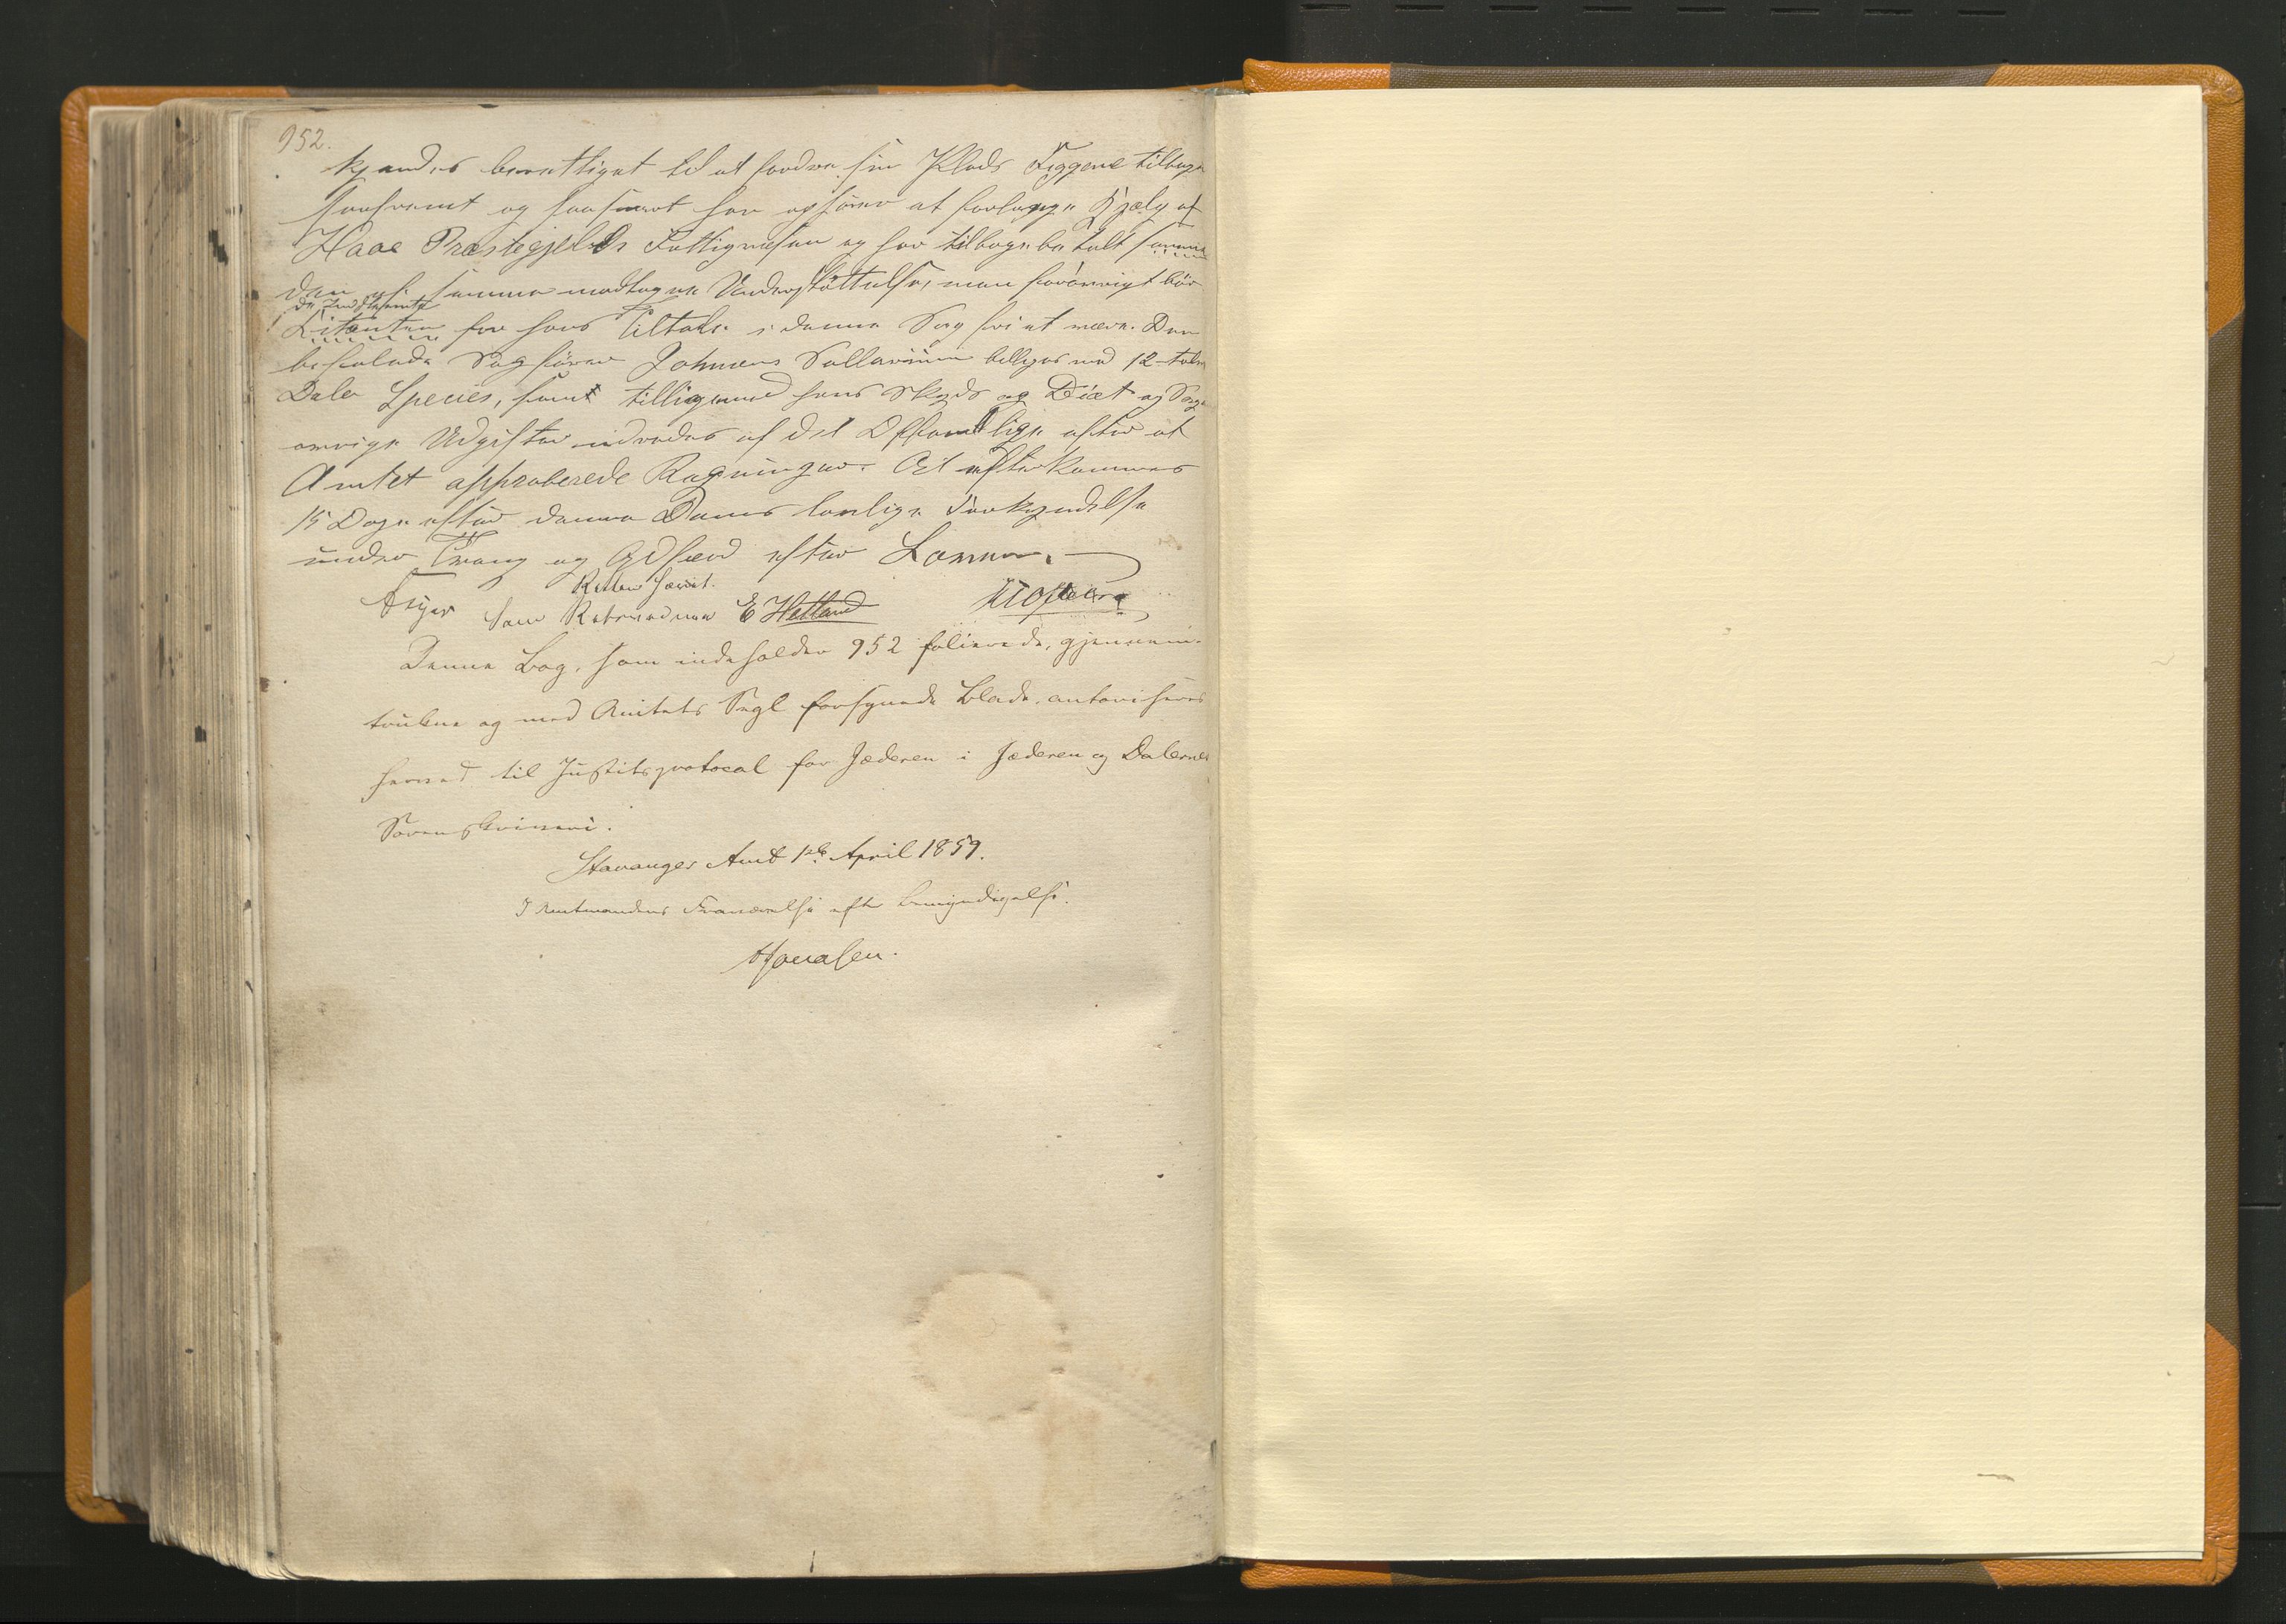 952.
kjendes berettiget til at fordre sin Plads Tiggene tilbage
saafremt og saasnart han ophører at forlange Hjælp af
Haae Præstegjelds Fattigvæsen og har tilbagebetalt samme
den af samme modtagne Understøttelse, men forøvrigt bør
de Indstevnte
Citanten for hans Tiltale i denne Sag fri at være. Den
befalede Sagfører Johnsens Sallarium billiges med 12 tolv
Daler Species, som tilligemed hans Skyds og Diæt og Sagens
øvrige Udgifter udredes af det Offentlige efter af
Amtet approberede Regninger. At efterkommes
15 Dage efter denne Doms lovlige Forkyndelse
under Tvang og Adfærd efter Loven.
Retten hævet.
Som Retsvidner E Hetland
Denne Bog, som indeholder 952 folierede, gjennem-
trukne og med Amtets Segl forsynede Blade, autoriseres
herved til Justitsprotocol for Jæderen i Jæderen og Dalernes
Sorenskriveri.
Stavanger Amt 1ste April 1859.
I Amtmandens Fraværelse efter Bemyndigelse.